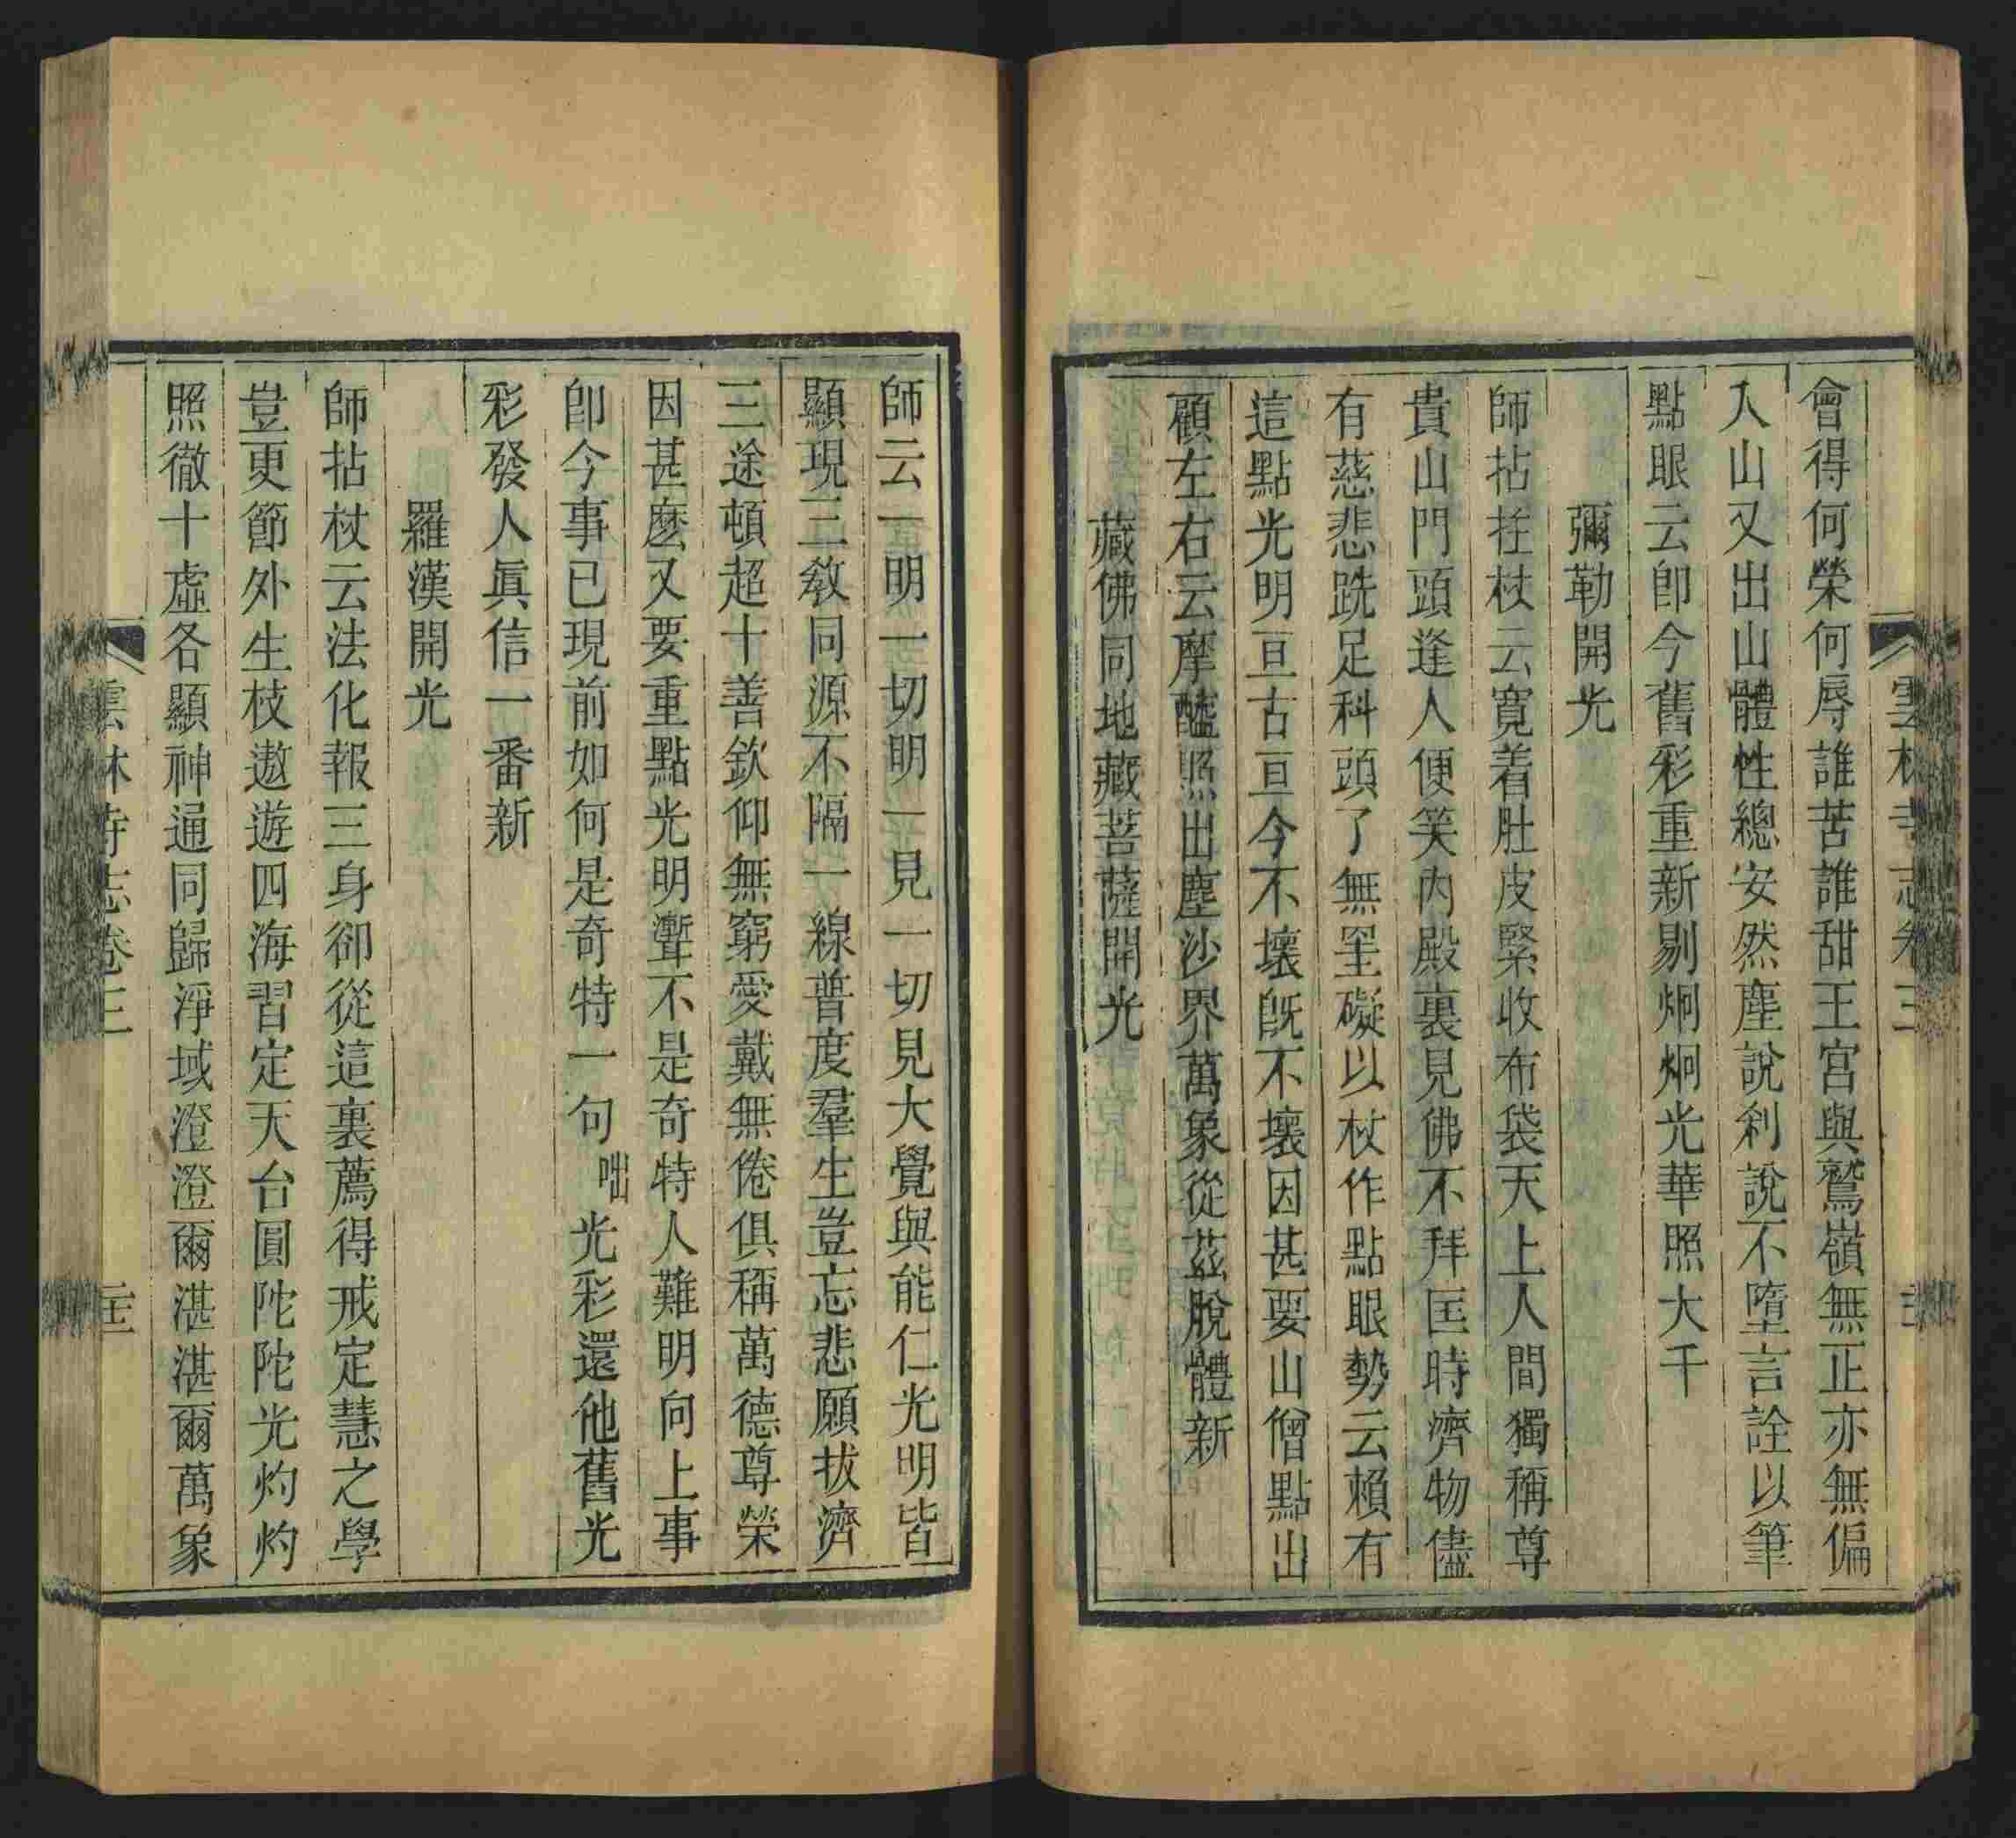 會得何榮何辱誰苦誰甜王宮與鷲嶺無正亦無偏
入山又出山體性總安然塵說刹說不墮言詮以筆
點眼云卽今舊彩重新剔炯炯光華照大千
彌勒開光
師拈拄杖云寬着肚皮緊收布袋天上人間獨稱尊
貴山門頭逢人便笑內殿裏見佛不拜匡時濟物儘
有慈悲跣足科頭了無罣礙以杖作點眼勢云賴有
這點光明亘古亘今不壞旣不壞因甚要山僧點出
顧左右云摩醯照出塵沙界萬象從茲脫體新
藏佛同地藏菩薩開光
師云一明一切明一見一切見大覺與能仁光明皆
顯現三敎同源不隔一線普度羣生豈忘悲願拔濟
三途頓超十善欽仰無窮愛戴無倦俱稱萬德尊榮
因甚麼又要重點光明讏不是奇特人難明向上事
卽今事已現前如何是奇特一句咄光彩還他舊光
彩發人眞信一番新
羅漢開光
師拈杖云法化報三身卻從這裏薦得戒定慧之學
豈更節外生枝遨遊四海習定天台圓陀陀光灼灼
照徹十虛各顯神通同歸淨域澄澄爾湛湛爾萬象
雲林寺志卷三